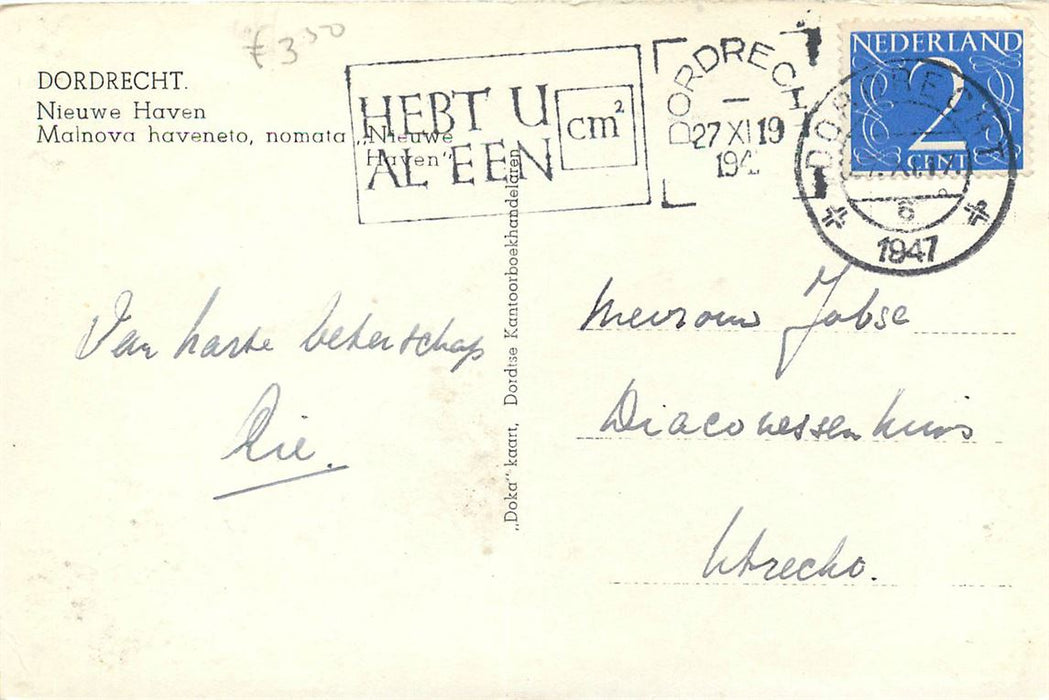 € 3 50
DORDRECHT.
Nieuwe Haven
Malnova haveneto, nomata „Nieuwe
Haven"
HEBT U
AL EEN
cm²
DORDRECHT
27 XI 19
194
NEDERLAND
2
CENT
DORDRECHT
6
1947
Van harte beterschap
Rie.
„Doka" kaart, Dordtse Kantoorboekhandelaren
Mevrouw Jobse
Diaconessenhuis
Utrecht.